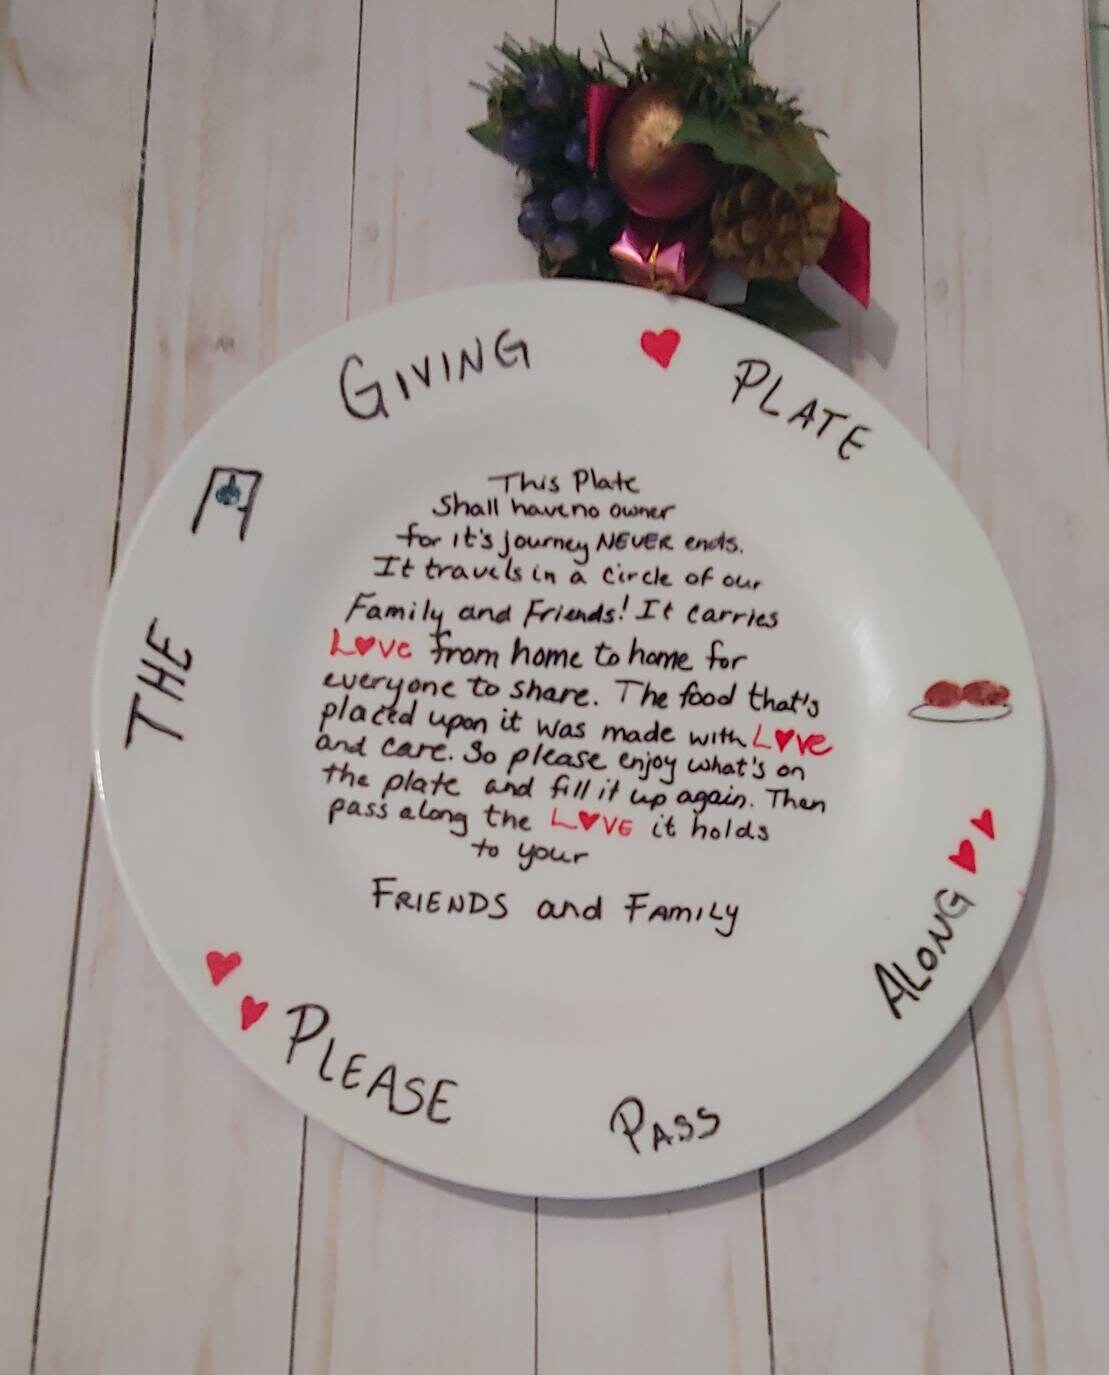 THE
GIVING
PLATE
This Plate
Shall have no owner
for it's journey NEVER ends.
It travels in a circle of our
Family and Friends! It carries
L♥ve from home to home for
everyone to share. The food that's
placed upon it was made with L♥ve
and care. So please enjoy what's on
the plate and fill it up again. Then
pass along the L♥VE it holds
to your
FRIENDS and FAMILY
PLEASE
PASS
ALONG